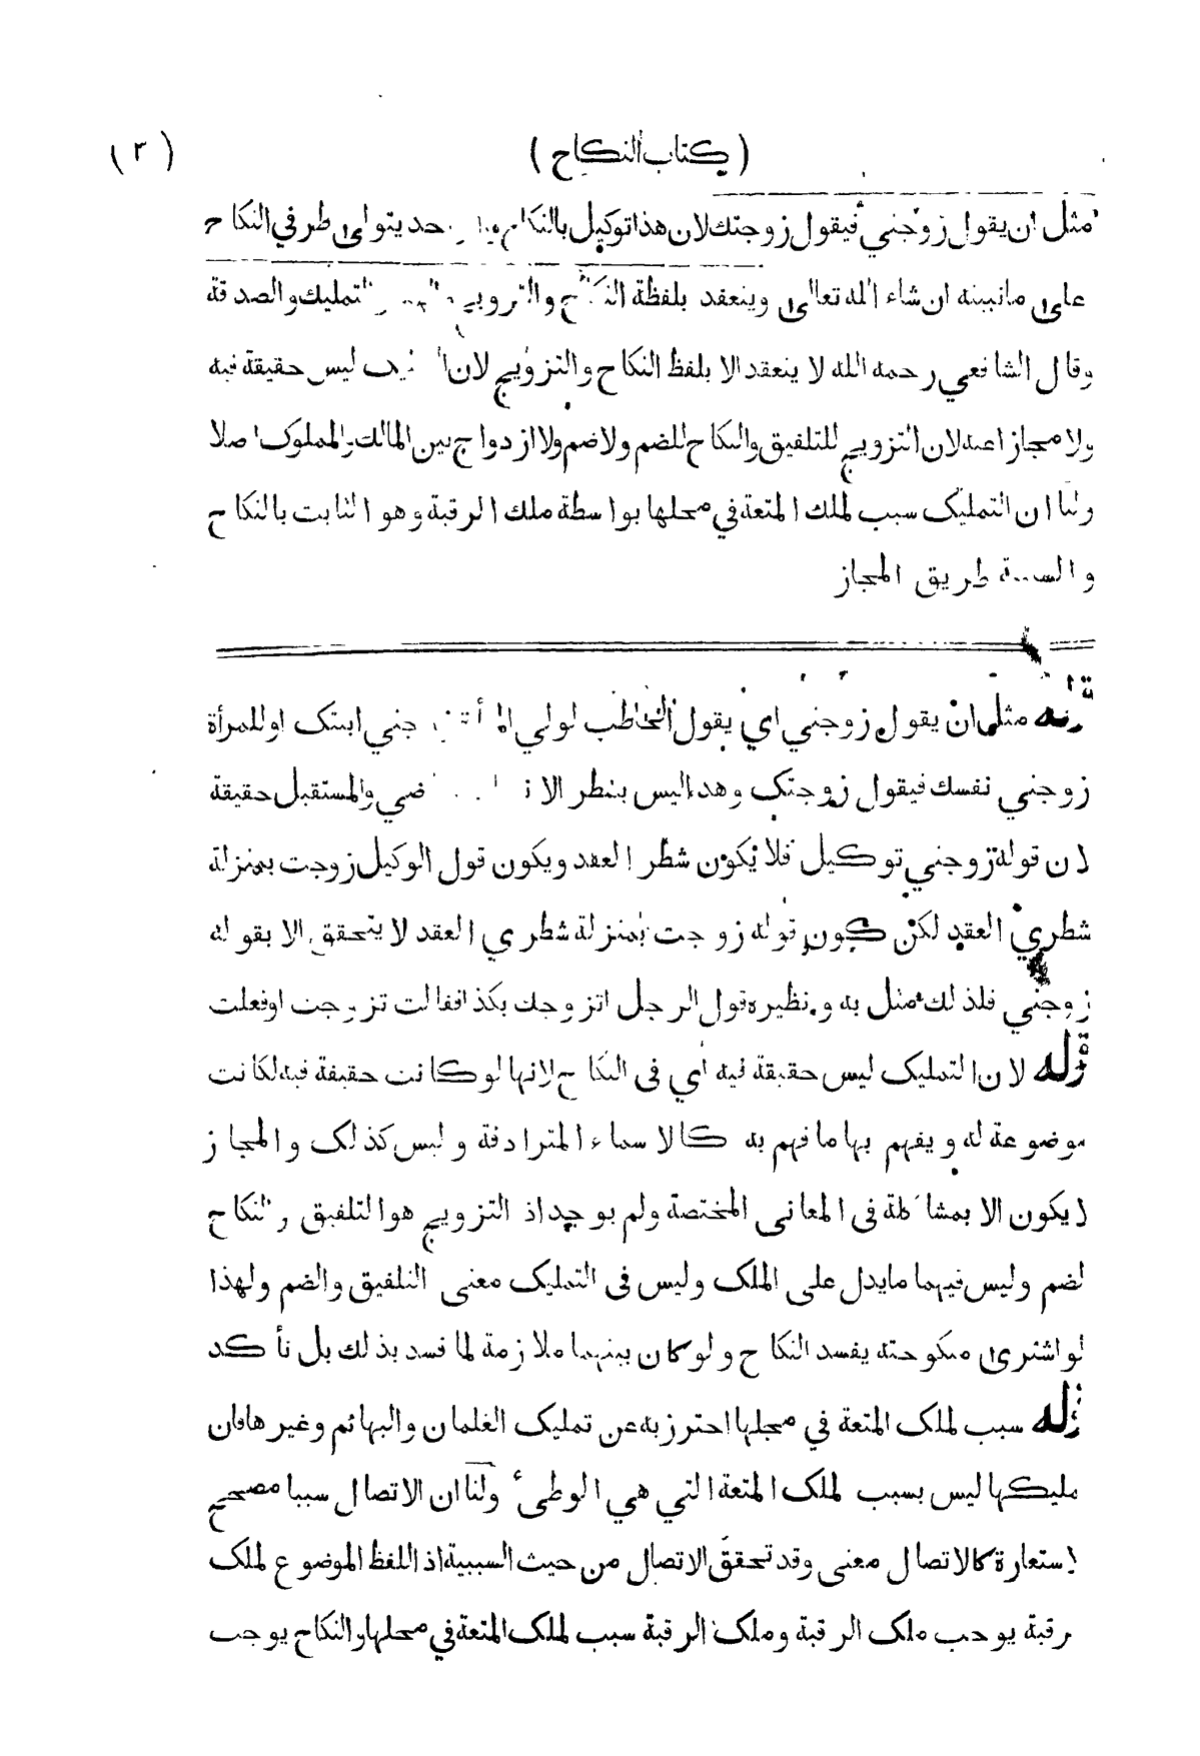 ( كتاب النكاح ) ( ٣ )
مثل ان يقول زوجني فيقول زوجتك لان هذا توكيل بالنكاح حد يتولى طرفي النكاح
على مانبينه ان شاء الله تعالى وينعقد بلفظة النكاح والتزويج والتمليك والصدقة
وقال الشافعي رحمه الله لا ينعقد الا بلفظ النكاح والتزويج لان ليس حقيقة فيه
ولا مجازا عنه لان التزويج للتلفيق والنكاح للضم ولا ضم ولا ازدواج بين المالك والمملوك اصلا
ولنا ان التمليك سبب لملك المتعة في محلها بواسطة ملك الرقبة وهو الثابت بالنكاح
والسببية طريق المجاز
قوله مثل ان يقول زوجني اي يقول الخاطب لولي جني ابنتك او للمرأة
زوجني نفسك فيقول زوجتك وهذا ليس بنظر الا ضي والمستقبل حقيقة
لان قوله زوجني توكيل فلا يكون شطر العقد ويكون قول الوكيل زوجت بمنزلة
شطري العقد لكن كون قوله زوجت بمنزلة شطري العقد لا يتحقق الا بقوله
زوجني فلذلك مثل به ونظيره قول الرجل اتزوجك بكذا فقالت تزوجت او فعلت
قوله لان التمليك ليس حقيقة فيه أي فى النكاح لانها لو كانت حقيقة فيه لكانت
موضوعة له ويفهم بها ما فهم به كالاسماء المترادفة وليس كذلك والمجاز
لا يكون الا بمشاكلة فى المعانى المختصة ولم يوجد اذ التزويج هو التلفيق والنكاح
لضم وليس فيهما مايدل على الملك وليس فى التمليك معنى التلفيق والضم ولهذا
لو اشترى منكوحته يفسد النكاح ولو كان بينهما ملازمة لما فسد بذلك بل تأكد
قوله سبب لملك المتعة في محلها احترز به عن تمليك الغلمان والبهائم وغيرها فان
مليكها ليس بسبب لملك المتعة التي هي الوطىء ولنا ان الاتصال سببا مصحح
لاستعارة كالاتصال معنى وقد تحقق الاتصال من حيث السببية اذ اللفظ الموضوع لملك
رقبة يوجب ملك الرقبة وملك الرقبة سبب لملك المتعة في محلها والنكاح يوجب